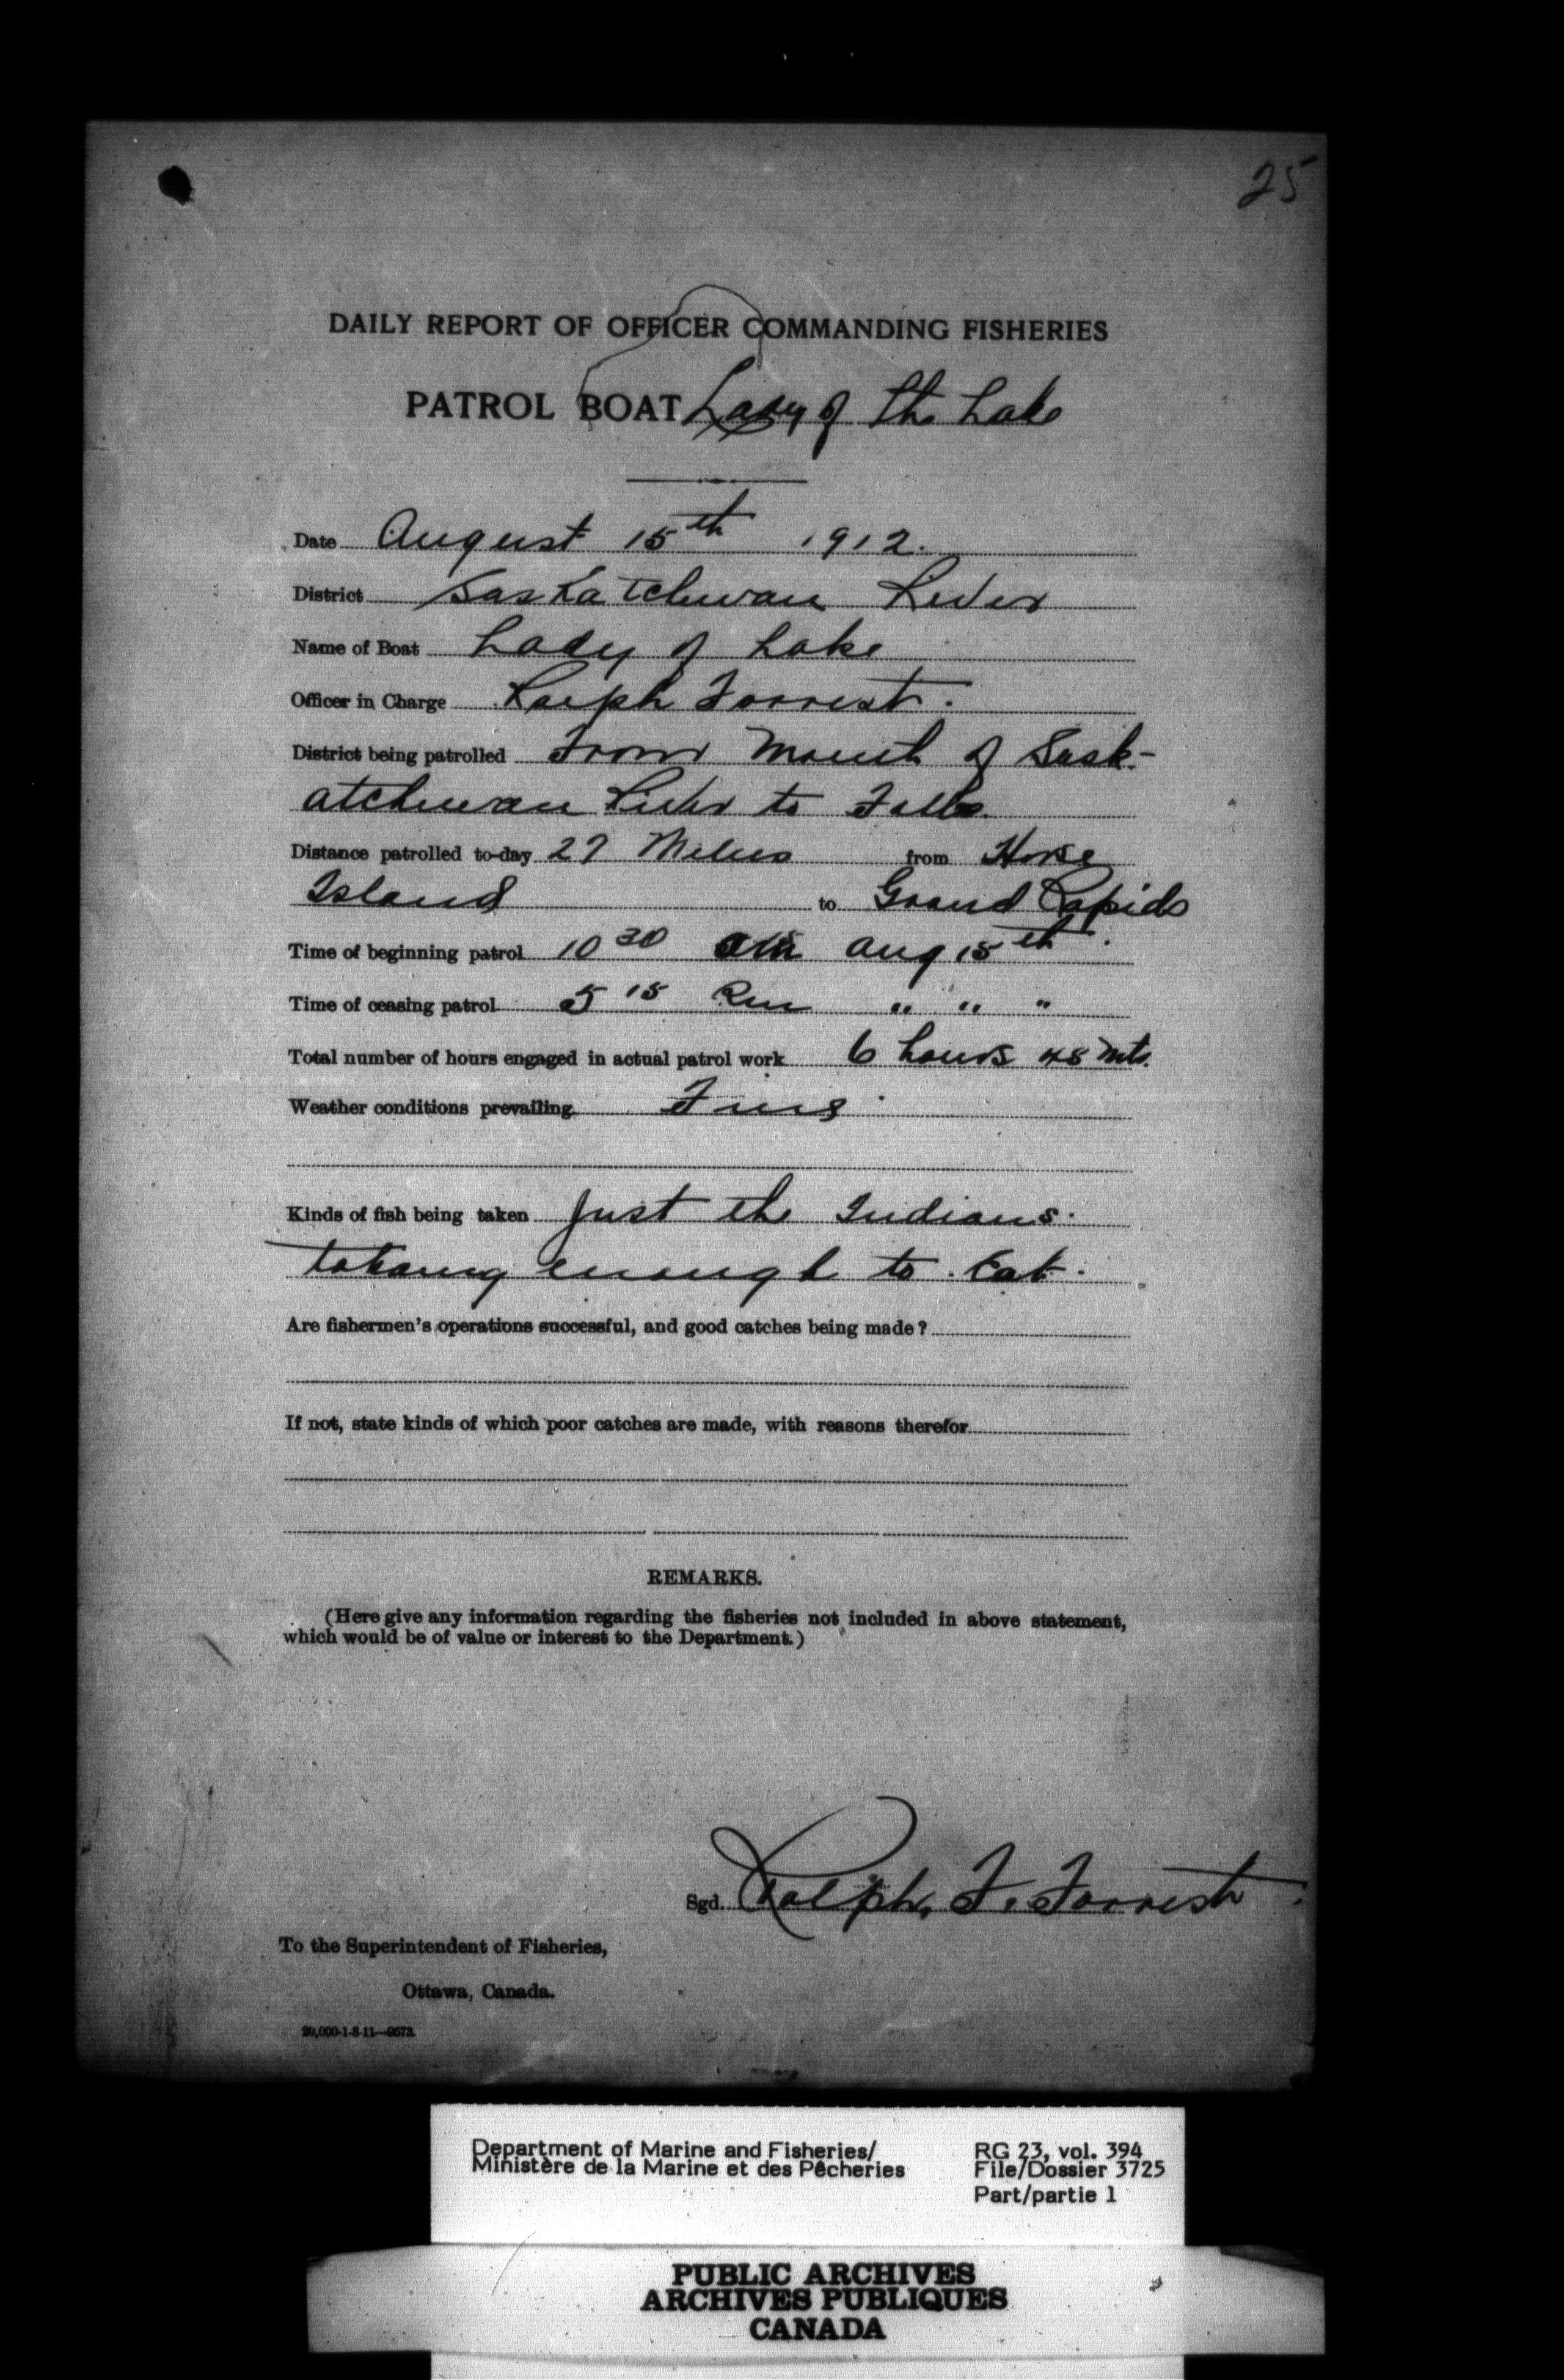 25
DAILY REPORT OF OFFICER COMMANDING FISHERIES
PATROL BOAT Lady of the Lake
Date August 15th 1912.
District Saskatchewan River
Name of Boat Lady of Lake
Officer in Charge Ralph Forrest.
District being patrolled From Mouth of Sask-
atchewan River to Falls.
Distance patrolled to-day 27 Miles from Horse
Island to Grand Rapids
Time of beginning patrol 10 30 am Aug 15th.
Time of ceasing patrol 5 15 Pm " " "
Total number of hours engaged in actual patrol work 6 hours 45 mts.
Weather conditions prevailing Fine.
Kinds of fish being taken Just the Indians.
taking enough to. Eat.
Are fishermen's operations successful, and good catches being made?
If not, state kinds of which poor catches are made, with reasons therefor
REMARKS.
(Here give any information regarding the fisheries not included in above statement,
which would be of value or interest to the Department.)
Sgd. Ralph, F. Forrest.
To the Superintendent of Fisheries,
Ottawa, Canada.
20,000-1-8-11—9673.
Department of Marine and Fisheries/ RG 23, vol. 394
Ministère de la Marine et des Pêcheries File/Dossier 3725
Part/partie 1
PUBLIC ARCHIVES
ARCHIVES PUBLIQUES
CANADA